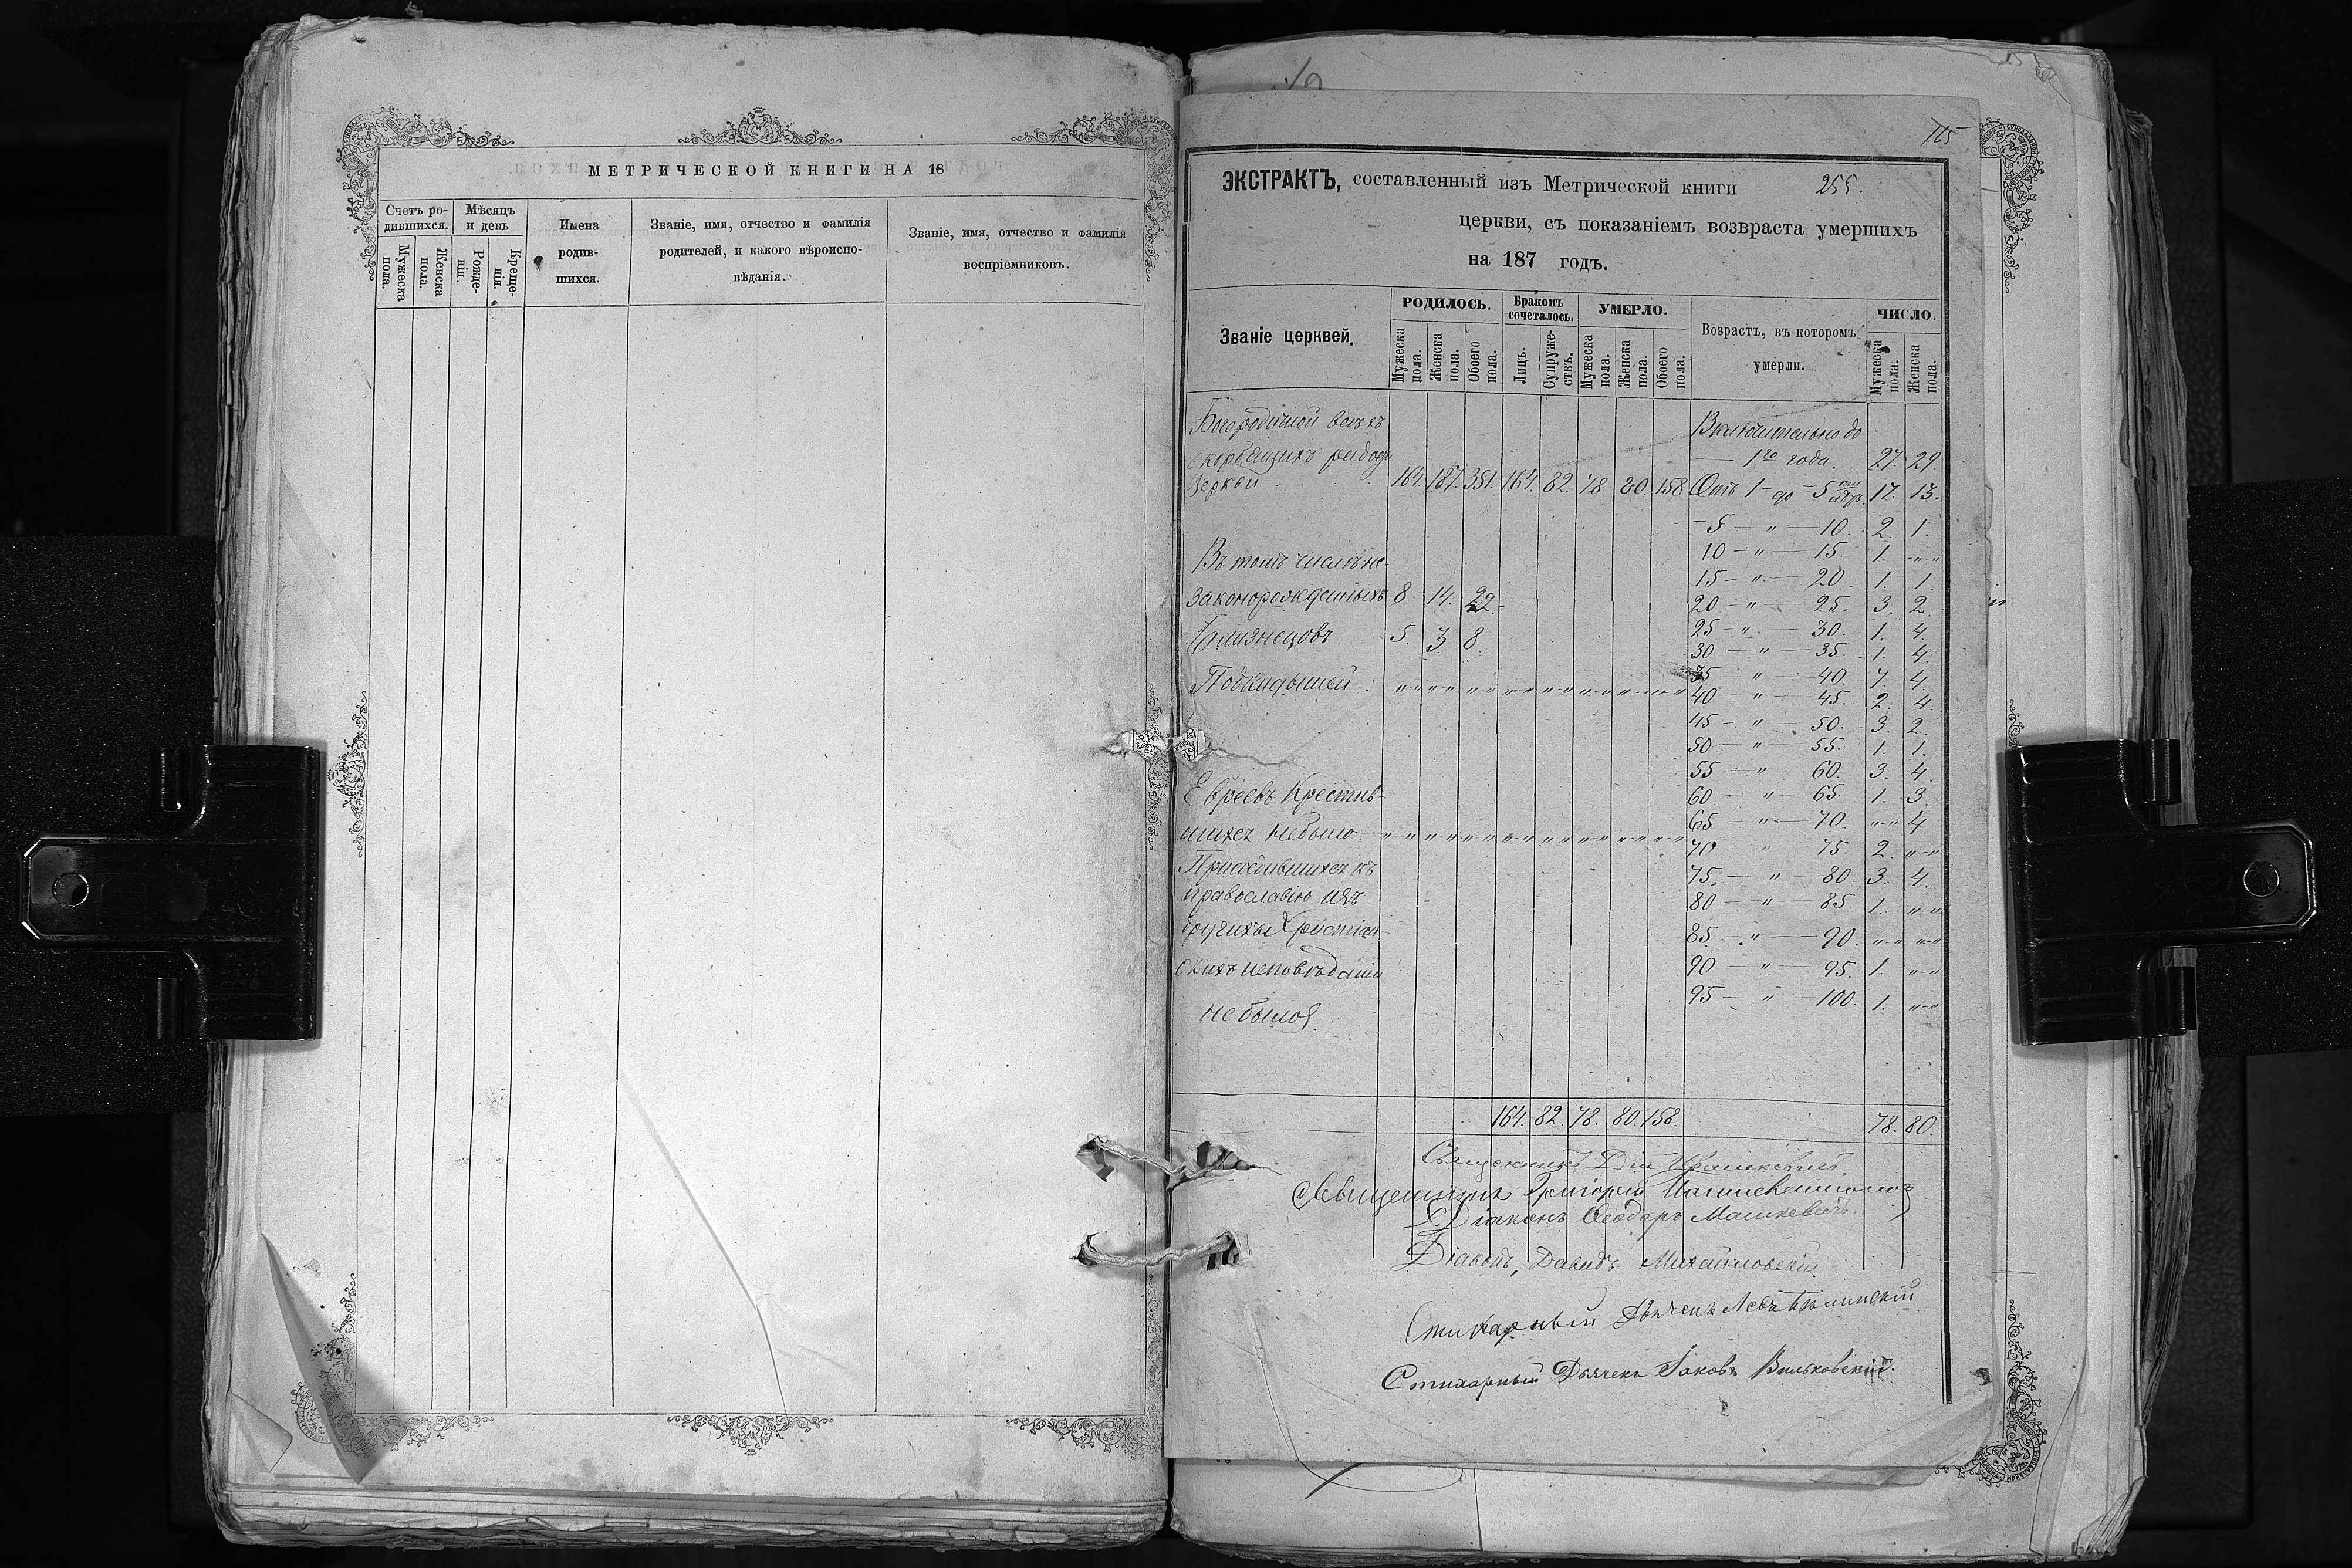 МЕТРИЧЕСКОЙ КНИГИ НА 18
Счетъ ро-
дившихся.
Мѣсяцъ
и день
Мужеска
пола.
Женска
пола.
Рожде-
нія.
Креще-
нія.
Имена
родив-
шихся.
Званіе, имя, отчество и фамилія
родителей, и какого вѣроиспо-
вѣданія.
Званіе, имя, отчество и фамилія
воспріемниковъ.
115
255.
ЭКСТРАКТЪ, составленный изъ Метрической книги
церкви, съ показаніемъ возвраста умершихъ
на 187 годъ.
Званіе церквей.
РОДИЛОСЬ.
Мужеска
пола.
Женска
пола.
Обоего
пола.
Бракомъ
сочеталось.
Лицъ.
Супруже-
ствъ.
УМЕРЛО.
Мужеска
пола.
Женска
пола.
Обоего
пола.
Возрастъ, въ которомъ
умерли.
ЧИСЛО.
Мужеска
пола.
Женска
пола.
Богородичной всѣхъ
скорбящихъ
Церкви 164. 187. 351. 164. 82. 78. 80. 158
Включительно до
— 1го года. 27. 29.
Отъ 1 — до — 5 17. 13.
5 — " — 10. 2. 1.
10 — " — 15. 1. " "
15 — " — 20. 1. 1
20 — " — 25. 3. 2.
25 — " — 30. 1. 4.
30 — " — 35. 1. 4.
35 " — 40. 7. 4.
40 — " — 45. 2. 4.
45 — " — 50. 3. 2.
50 — " — 55. 1. 1.
55 — " 60. 3. 4.
60 — " 65. 1. 3.
65 — " — 70. " " 4
70 " 75. 2. " "
75. — " — 80. 3. 4.
80 — " — 85. 1. " "
85. — " — 90. " " " "
90 — " — 95. 1. " "
95 — " — 100. 1. " "
Въ томъ числѣ не-
законорожденныхъ 8 14. 22.
Близнецовъ 5. 3. 8.
Подкидышей
Евреевъ Крестив-
шихся небыло
къ
православію изъ
другихъ Христіан-
скихъ исповѣданій
небыло
164. 82. 78. 80. 158. 78. 80.
Священникъ
Священникъ Григорій
Діаконъ Ѳеодоръ Машкевичъ.
Діаконъ, Давидъ Михайловскій
Стихарный Дьячекъ Левъ
Стихарный Дьячекъ Іаковъ Вильковскій.